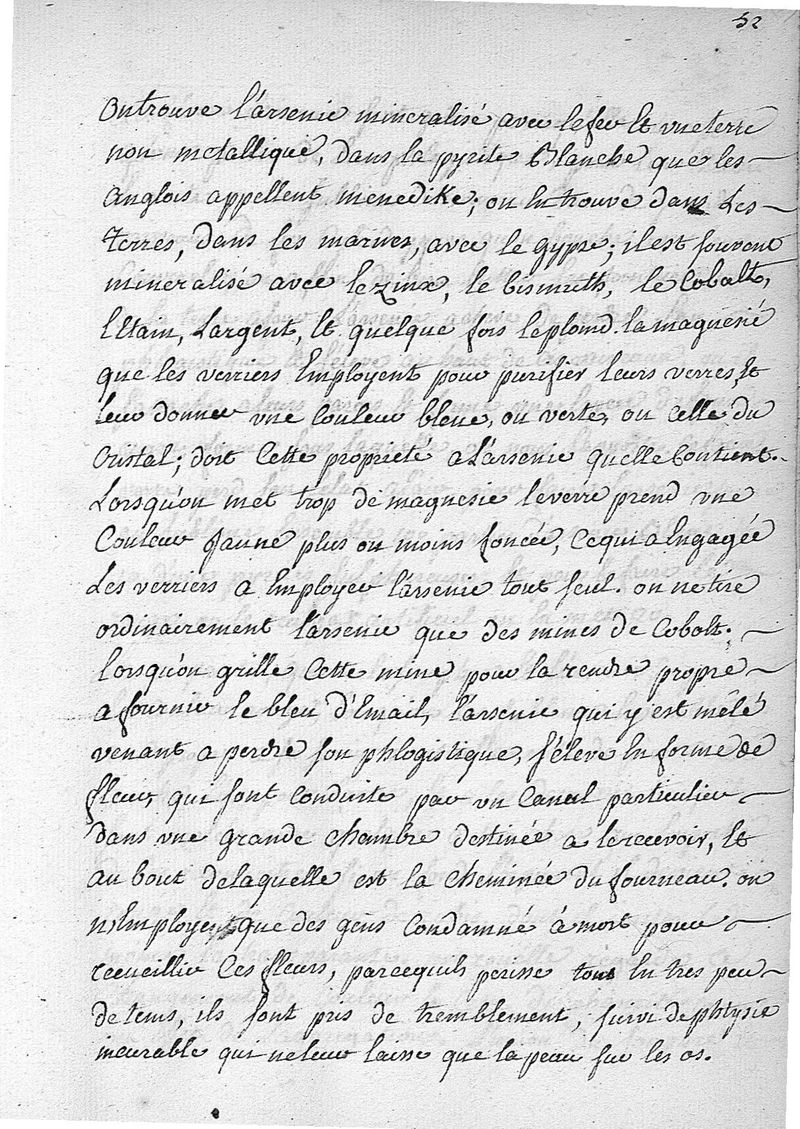 52
on trouve l'arsenic mineralisé avec le fer et vne terre
non metallique, dans la pyrite Blanche que les
anglois appellent menedike; on En trouve dans Les
Terres, dans les marnes, avec le gypse; il est souvent
mineralisé avec le zinx, le bismuth, le Cobalt,
l'Etain, L'argent, Et quelque fois le plomb. la magnesié
que les verriers Employent pour purifier leurs verres, Et
leur donner vne Couleur bleue, ou verte, ou Celle du
Cristal; doit Cette proprieté a L'arsenic quelle Contient.
Lorsqu'on met trop de magnesie le verre prend vne
Couleur Jaune plus ou moins foncée, Ce qui a Engagée
Les verriers a Employer l'arsenic tout seul. on ne tire
ordinairement l'arsenic que des mines de Cobolt.
lorsqu'on grille Cette mine pour la rendre propre
a fournir le bleu d'Email, l'arsenic qui y est mêlé
venant a perdre son phlogistique, s'éleve En forme de
fleur, qui sont Conduite par vn Canal particulier
dans vne grande chambre destinée a le recevoir, Et
au bout de laquelle est la cheminée du fourneau. on
n'Employent que des gens Condamné à mort pour
recueillir Ces fleurs, parcequils perisse tous En tres peu
de tems, ils sont pris de tremblement, suivi de phtysie
incurable qui ne leur laisse que la peau sur les os.